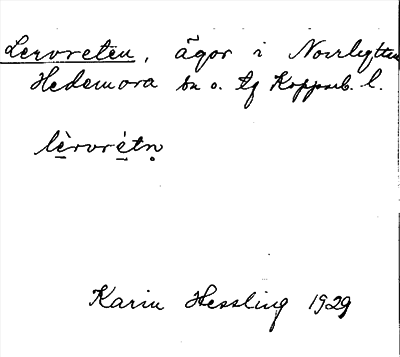 Lervreten, ägor i Norrhyttan
Hedemora sn o. tg Kopparb. l.
lè̱rvré̱tn̥
Karin Hessling 1929